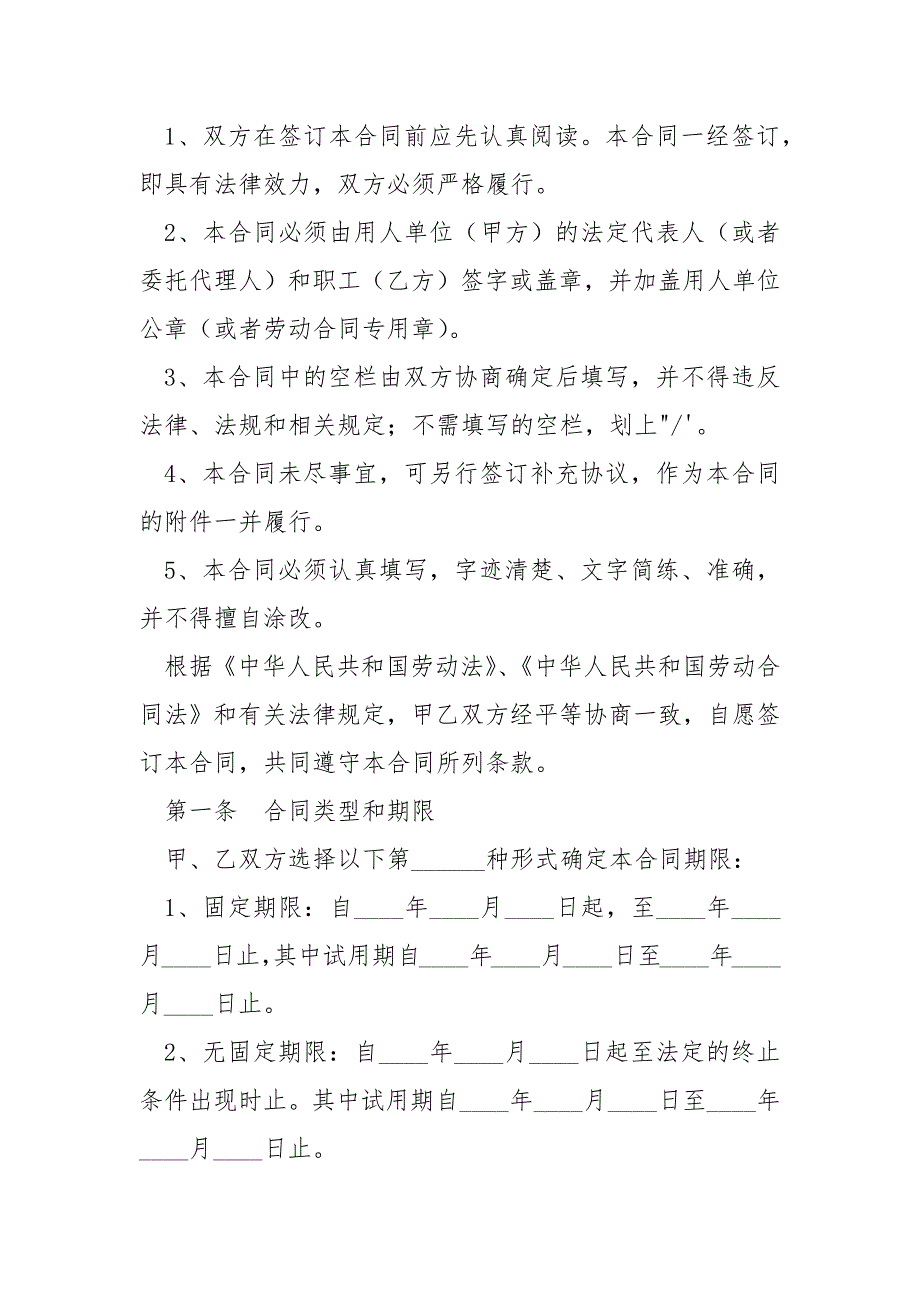 1、双方在签订本合同前应先认真阅读。本合同一经签订，
即具有法律效力，双方必须严格履行。
2、本合同必须由用人单位（甲方）的法定代表人（或者
委托代理人）和职工（乙方）签字或盖章，并加盖用人单位
公章（或者劳动合同专用章）。
3、本合同中的空栏由双方协商确定后填写，并不得违反
法律、法规和相关规定；不需填写的空栏，划上"/'。
4、本合同未尽事宜，可另行签订补充协议，作为本合同
的附件一并履行。
5、本合同必须认真填写，字迹清楚、文字简练、准确，
并不得擅自涂改。
根据《中华人民共和国劳动法》、《中华人民共和国劳动合
同法》和有关法律规定，甲乙双方经平等协商一致，自愿签
订本合同，共同遵守本合同所列条款。
第一条　合同类型和期限
甲、乙双方选择以下第______种形式确定本合同期限：
1、固定期限：自____年____月____日起，至____年____
月____日止,其中试用期自____年____月____日至____年____
月____日止。
2、无固定期限：自____年____月____日起至法定的终止
条件出现时止。其中试用期自____年____月____日至____年
____月____日止。